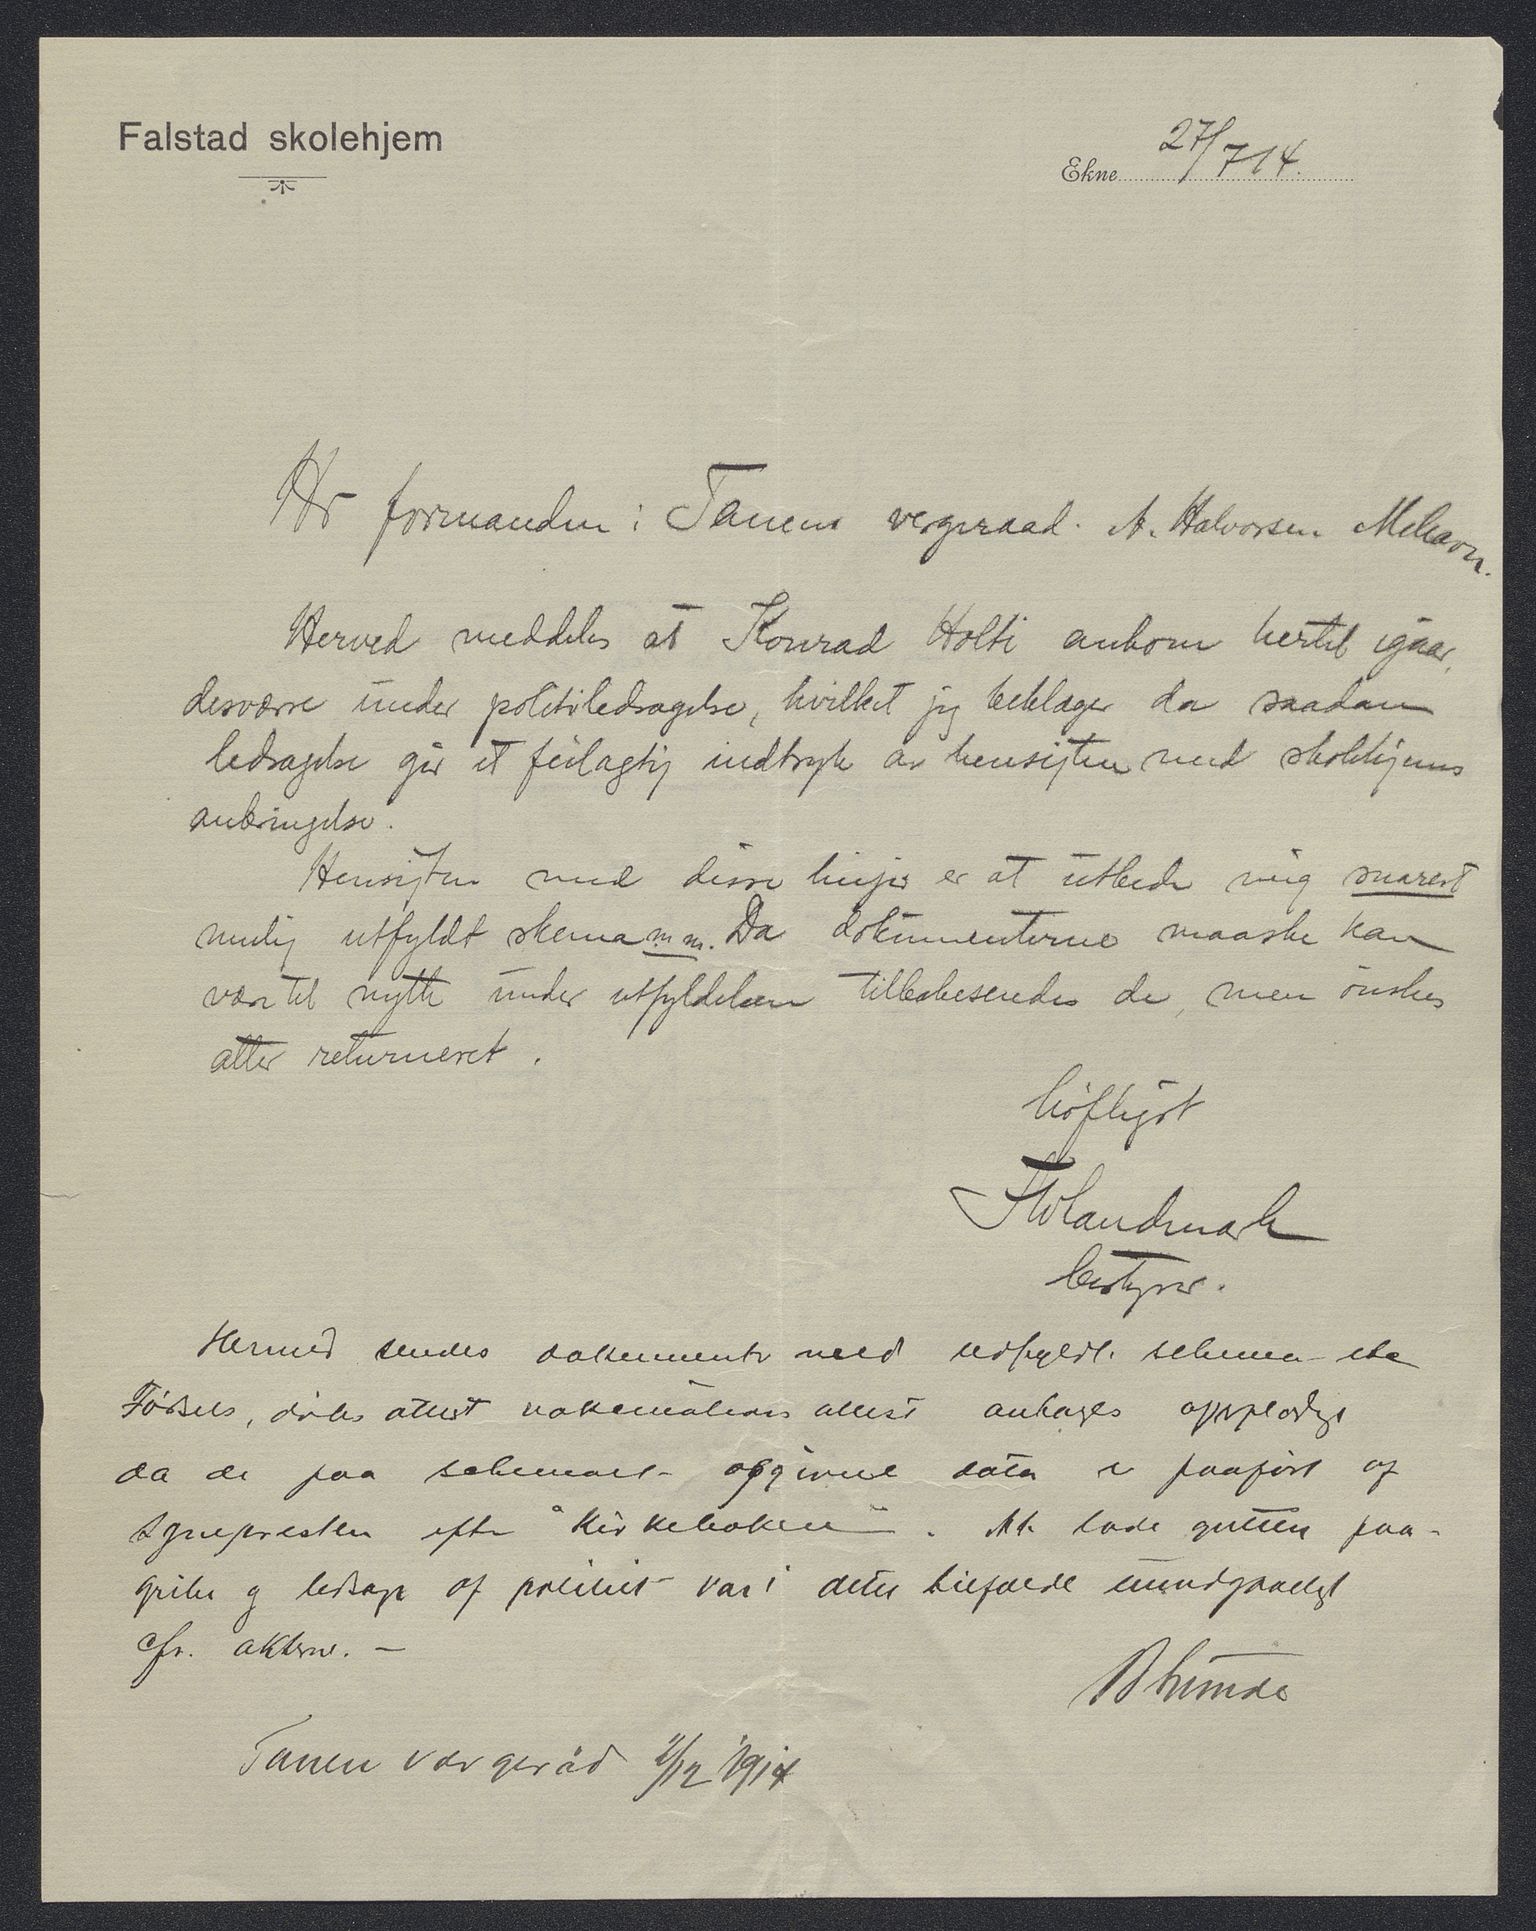 Falstad skolehjem
Ekne 27/7 14.
Hr formanden i Tanens vergeraad. A. Halvorsen Mehavn.
Herved meddeles at Konrad Holti ankom hertil igaar,
desværre under politiledsagelse, hvilket jeg beklager da saadan
ledsagelse gir et feilagtig indtryk av hensigten med skolehjems
anbringelse.
Hensigten med disse linjer er at utbede mig snarest
mulig utfyldt skema m.m. Da dokumenterne maaske kan
være til nytte under utfyldelsen tilbakesendes de, men ønskes
atter returneret.
høfligst
Landmark
bestyrer.
Hermed sendes dokumenter med udfyldt schema
Fødsels, daabs attest vakcinations attest antages
da de paa schemaet opgivne data er paaført af
sognepresten efter kirkeboken. At lade gutten paa-
gribe og ledsage af politiet var i dette tilfælde uundgaaeligt
cfr. akterne. -
Tanen vergeråd 2/12 1914